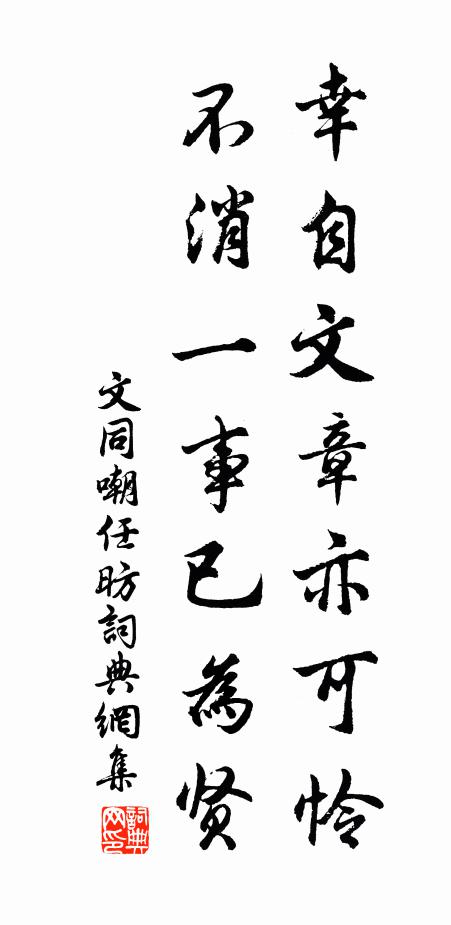 幸自文章亦可怜
不消一事已為贤
文同嘲任昉詞典網集
詞典
网印